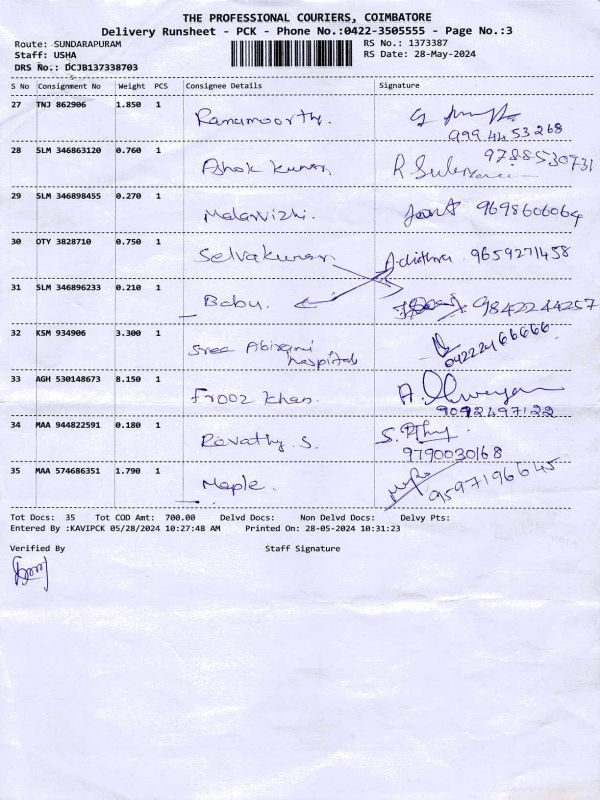 THE PROFESSIONAL COURIERS, COIMBATORE
Delivery Runsheet - PCK - Phone No.:0422-3505555 - Page No.:3
Route: SUNDARAPURAM RS No.: 1373387
Staff: USHA RS Date: 28-May-2024
DRS No.: DCJB137338703
S No Consignment No Weight PCS Consignee Details Signature
27 TNJ 862906 1.850 1 Ramamoorthy.
999 4453268
28 SLM 346863120 0.760 1 Ashok kumar 9788530731
29 SLM 346898455 0.270 1 Malarvizhi. 9698606064
30 OTY 3828710 0.750 1 Selvakumar 9659271458
31 SLM 346896233 0.210 1 Babu. 9842244257
32 KSM 934906 3.300 1 Sree Abirami hospitals 04222466666
33 AGH 530148673 8.150 1 Frooz khan.
9092697122
34 MAA 944822591 0.180 1 Revathy. S.
9790030168
35 MAA 574686351 1.790 1 Maple. 9597196645
Tot Docs: 35 Tot COD Amt: 700.00 Delvd Docs: Non Delvd Docs: Delvy Pts:
Entered By :KAVIPCK 05/28/2024 10:27:48 AM Printed On: 28-05-2024 10:31:23
Verified By Staff Signature